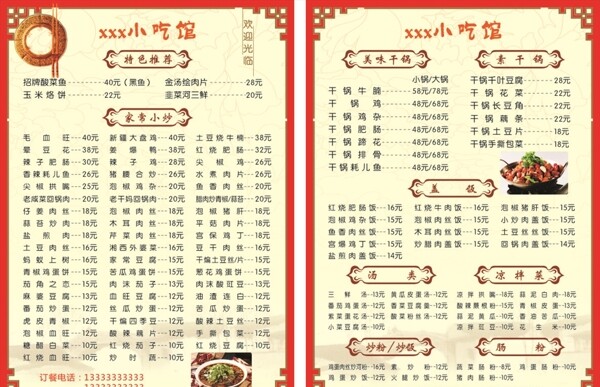 xxx小吃馆
欢迎光临
特色推荐
招牌酸菜鱼 40元（黑鱼） 金汤烩肉片 28元
玉米烙饼 22元 韭菜河三鲜 20元
家常小炒
毛血旺 40元 新疆大盘鸡 40元 土豆烧牛楠 38元
晕豆花 38元 姜爆鸭 38元 红烧肥肠 32元
辣子肥肠 30元 辣子鸡 28元 尖椒鸡 26元
香辣耗儿鱼 26元 猪腰合炒 26元 水煮肉片 26元
尖椒拱嘴 25元 泡椒鸡杂 25元 鱼香肉丝 20元
老咸菜回锅肉 20元 老干妈回锅肉 20元 腊肉炒青椒/蒜苔 20元
仔姜肉丝 18元 泡椒肉丝 18元 泡椒猪肝 18元
蒜苔炒肉 18元 木耳肉丝 18元 平菇肉片 18元
盐煎肉 18元 芹菜肉丝 18元 宫保鸡丁 18元
土豆肉丝 16元 湘西外婆菜 16元 豆干肉丝 16元
蚂蚁上树 16元 家常豆腐 15元 干煸土豆丝/片 15元
青椒鸡蛋饼 15元 苦瓜鸡蛋饼 15元 葱花鸡蛋饼 15元
茄角之恋 15元 肉沫茄子 15元 肉沫酸豇豆 15元
麻婆豆腐 13元 血旺豆腐 12元 油渣莲白 12元
番茄炒蛋 12元 丝瓜炒蛋 12元 苦瓜炒蛋 12元
虎皮青椒 12元 干煸四季豆 12元 酸辣土豆丝 12元
泡椒血旺 12元 酸辣藕片 12元 手撕包菜 12元
糖醋白菜 10元 红烧茄子 10元 红烧豆腐 10元
红烧血旺 10元 炒时蔬 10元
订餐电话：13333333333
13333333333
xxx小吃馆
美味干锅
小锅/大锅
干锅牛腩 58元/78元
干锅鸡 48元/68元
干锅鸡杂 48元/68元
干锅肥肠 48元/68元
干锅蹄花 48元/68元
干锅排骨 48元/68元
干锅耗儿鱼 48元/68元
素干锅
干锅千叶豆腐 28元
干锅花菜 22元
干锅长豆角 22元
干锅藕条 22元
干锅土豆片 18元
干锅手撕包菜 18元
盖饭
红烧肥肠饭 16元 红烧牛肉饭 16元 泡椒猪肝饭 15元
泡椒鸡杂饭 15元 泡椒肉丝饭 15元 小炒肉盖饭 15元
鱼香肉丝饭 15元 木耳肉丝饭 15元 土豆肉丝饭 15元
宫爆鸡丁饭 15元 炒腊肉盖饭 15元 回锅肉盖饭 14元
盐煎肉盖饭 14元
汤类
三鲜汤 13元 黄瓜皮蛋汤 12元
番茄鸡蛋汤 12元 香菜豆腐汤 12元
紫菜蛋花汤 12元 酸菜粉丝汤 12元
小菜豆腐汤 10元
凉拌菜
凉拌拱嘴 18元 蒜泥白肉 18元
酸辣蕨根粉 15元 青椒皮蛋 13元
凉拌三丝 10元 蒜泥黄瓜 10元
凉拌豇豆 10元 花生米 10元
炒粉/炒饭
鸡蛋肉丝炒河粉 16元 素炒粉 12元
鸡蛋炒饭 12元 火腿炒饭 12元
肠粉
蔬菜肠粉 8元 鸡蛋肠粉 8元
猪肉肠粉 10元